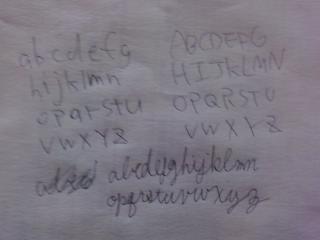 abcdefg
hijklmn
opqrstu
vwxyz
ABCDEFG
HIJKLMN
OPQRSTU
VWXYZ
abcdefghijklmn
opqrstuvwxyz